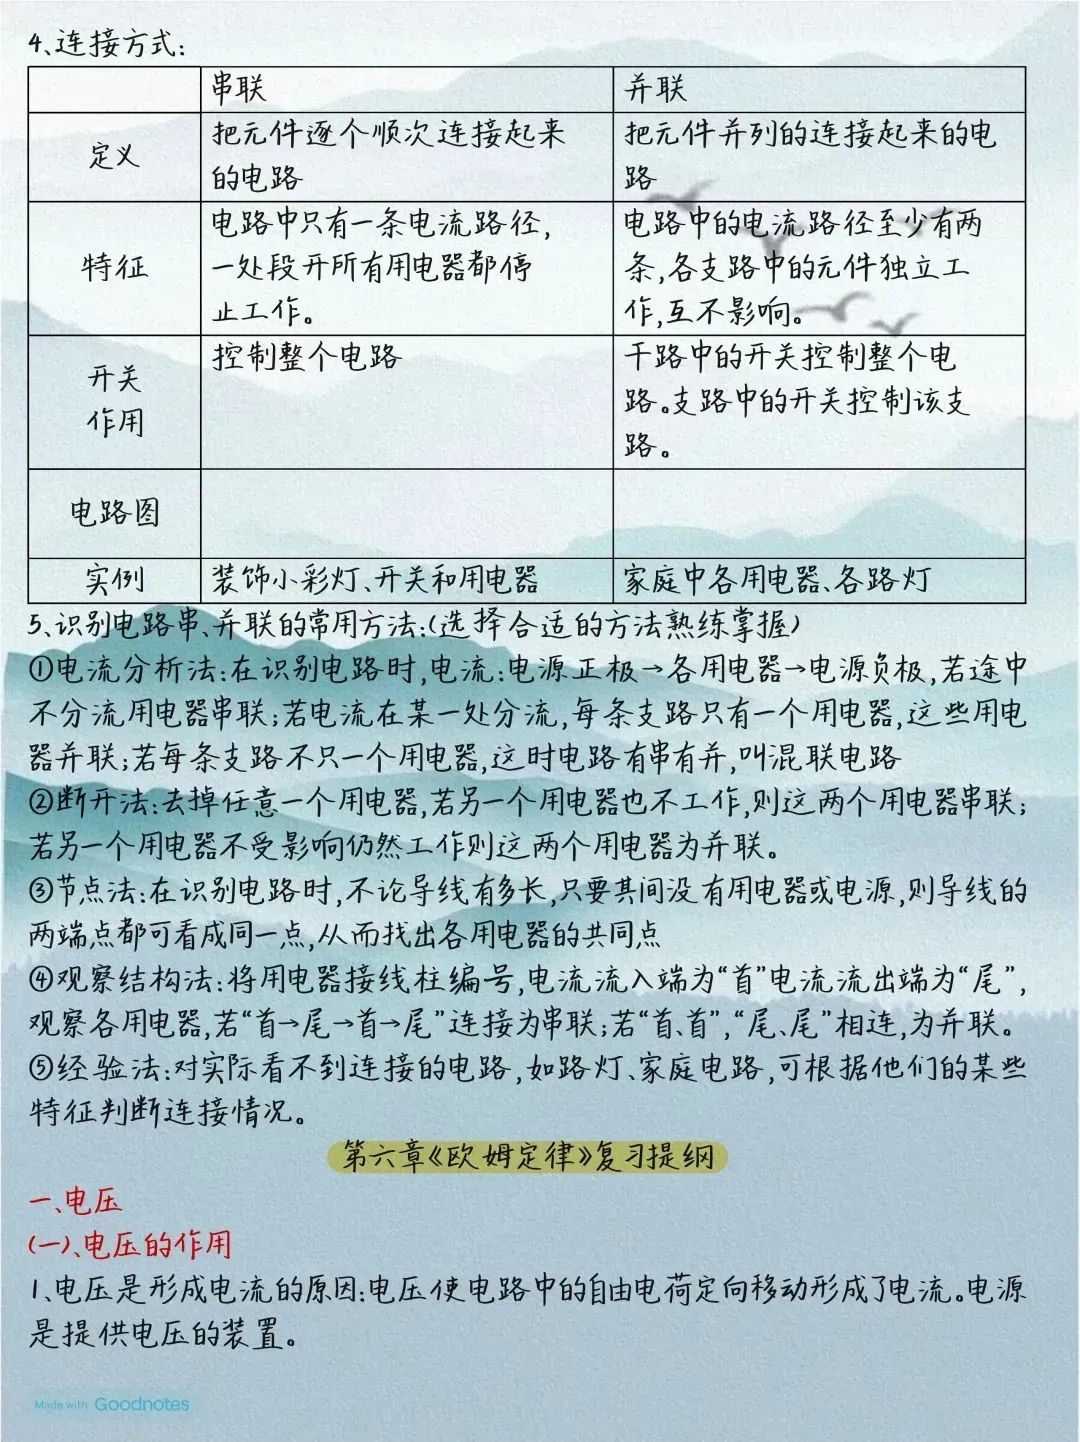 4、连接方式:
串联 并联
定义 把元件逐个顺次连接起来的电路 把元件并列的连接起来的电路
特征 电路中只有一条电流路径,一处段开所有用电器都停止工作。 电路中的电流路径至少有两条,各支路中的元件独立工作,互不影响。
开关作用 控制整个电路 干路中的开关控制整个电路。支路中的开关控制该支路。
电路图
实例 装饰小彩灯、开关和用电器 家庭中各用电器、各路灯
5、识别电路串、并联的常用方法:(选择合适的方法熟练掌握)
①电流分析法:在识别电路时,电流:电源正极→各用电器→电源负极,若途中
不分流用电器串联;若电流在某一处分流,每条支路只有一个用电器,这些用电
器并联;若每条支路不只一个用电器,这时电路有串有并,叫混联电路
②断开法:去掉任意一个用电器,若另一个用电器也不工作,则这两个用电器串联;
若另一个用电器不受影响仍然工作则这两个用电器为并联。
③节点法:在识别电路时,不论导线有多长,只要其间没有用电器或电源,则导线的
两端点都可看成同一点,从而找出各用电器的共同点
④观察结构法:将用电器接线柱编号,电流流入端为“首”电流流出端为“尾”,
观察各用电器,若“首→尾→首→尾”连接为串联;若“首、首”,“尾、尾”相连,为并联。
⑤经验法:对实际看不到连接的电路,如路灯、家庭电路,可根据他们的某些
特征判断连接情况。
第六章《欧姆定律》复习提纲
一、电压
(一)、电压的作用
1、电压是形成电流的原因:电压使电路中的自由电荷定向移动形成了电流。电源
是提供电压的装置。
Made with Goodnotes